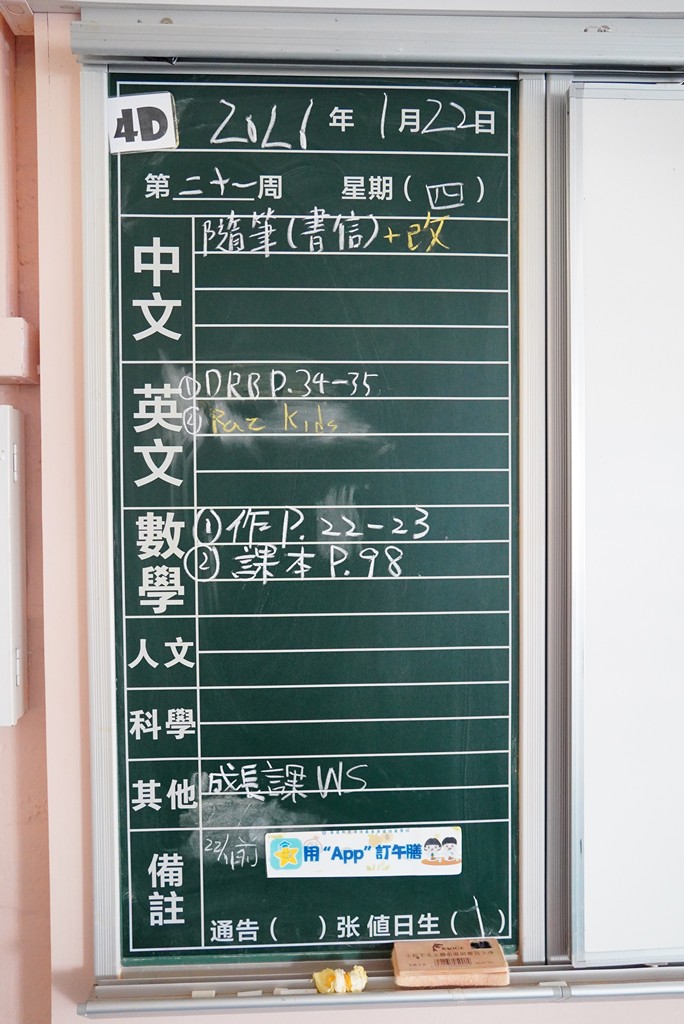 4D
2021年1月22日
第二十一周 星期(四)
中文
隨筆(書信)+改
英文
①DRB P.34-35
②Raz Kids
數學
①作P.22-23
②課本P.98
人文
科學
其他
成長課WS
備註
22/1前
用“App”訂午膳
通告( )张 值日生(1)